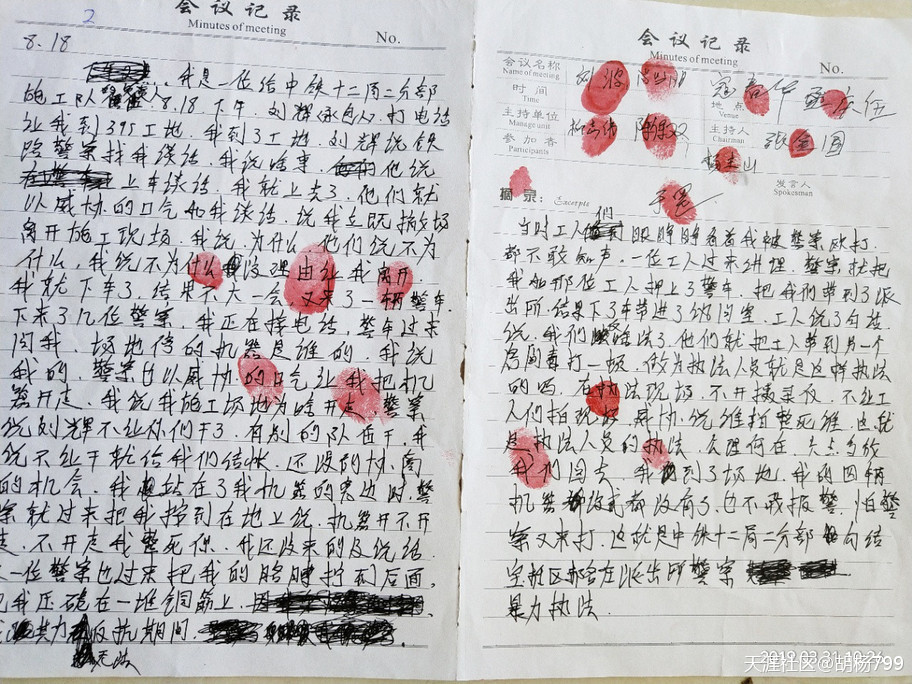 会议记录
Minutes of meeting
2
8.18
No.
我是一位给中铁十二局二分部
施工队 8.18下午 刘辉承包人.打电话
让我到395工地.我到了工地.刘辉说铁
路警察找我谈话.我说啥事.他说
上车谈话.我就上去了.他们就
以威协的口气和我谈话.说我立既撤场
离开施工现场.我说.为什么.他们说不为
什么.我说不为什么 我没理由让我离开.
我就下车了.结果不大一会又来了一辆警车.
下来了几位警察.我正在接电话.警车过来
问我.场地停的机器是谁的.我说
我的.警察也以威协的口气让我把机
器开走.我说我施工场地为啥开走.警察
说刘辉不让你们干了.有别的队伍干.我
说不让干就给我们结帐.还没的协商
的机会.我站在了我机器的旁边时.警
察就过来把我按到在地上说.机器开不开
走.不开走我整死你.我还没来的及说话.
一位警察也过来把我的胳膊拧到后面.
把我压磕在一堆钢筋上.
反抗期间.
无法
会议记录
Minutes of meeting
No.
会议名称
Name of meeting
刘波
时间
Time
地点
Venue
主持单位
Manage unit
主持人
Chairman
张金圆
参加者
Participants
发言人
Spokesman
摘录：
Excerpts
当时工人们眼睁睁看着我被警察欧打.
都不敢知声.一位工人过来讲理.警察就把
我和那位工人押上了警车.把我们带到了派
出所.结果下了车带进了询问室.工人说了句话
说.我们犯啥法了.他们就把工人带到另一个
房间毒打一顿.做为执法人员就是这样执法
的吗.在执法现场.不开摄录仪.不让工
人们拍现场.威协.说谁拍整死谁.这就
是执法人员的执法.公理何在.
我们回去.我到了场地.我的四辆
机器都没有了.也不敢报警.怕警
察又来打.这就是中铁十二局二分部勾结
派出所警察
暴力执法.
2019.03.31 10:26
天涯社区@胡杨799